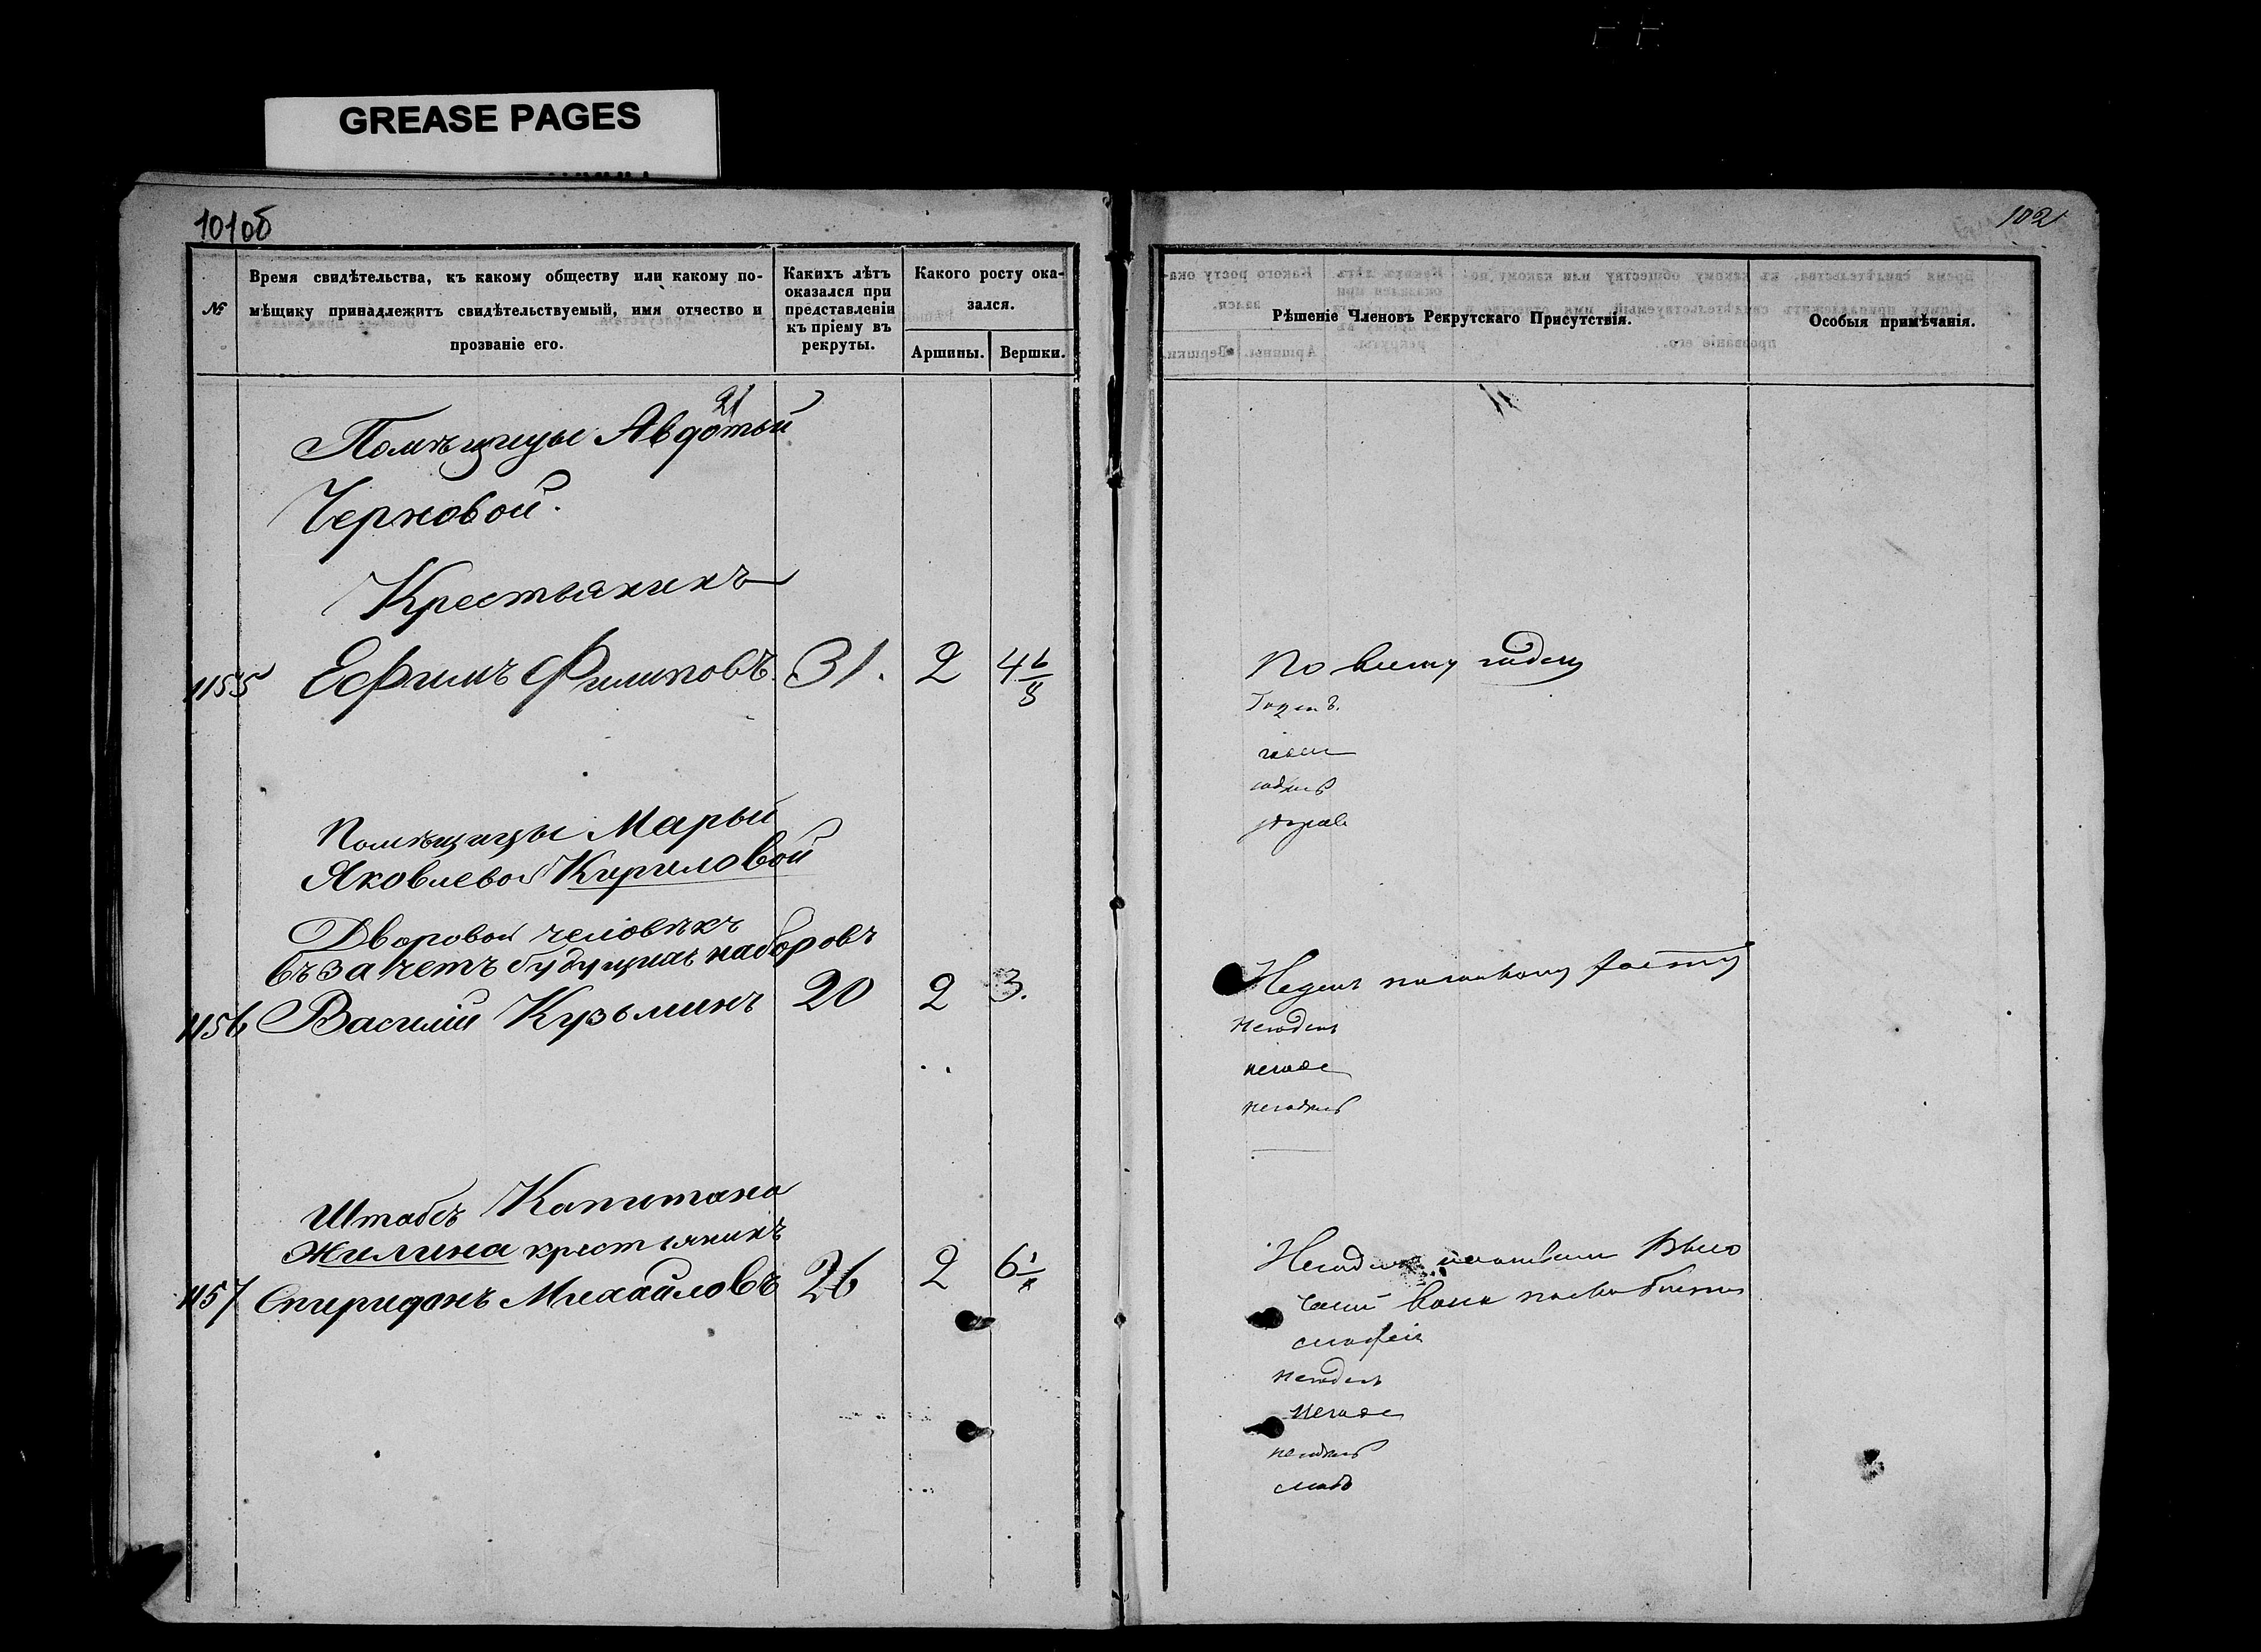 GREASE PAGES
101об
№
Время свидѣтельства, къ какому обществу или какому по-
мѣщику принадлежитъ свидѣтельствуемый, имя отчество и
прозваніе его.
Какихъ лѣтъ
оказался при
представленіи
къ пріему въ
рекруты.
Какого росту ока-
зался.
Аршины.
Вершки.
21
Помѣщицы Авдотьи
Черновой.
Крестьянинъ
1155 Ефимъ Филиповъ. 31. 2 4 6/8
Помѣщицы Марьи
Яковлевой Кириловой
Дворовой человѣкъ
въ зачетъ будущихъ наборовъ
1156 Василій Кузьминъ 20 2 3.
Штабсъ Капитана
Жилина крестьянинъ
1157 Спиридонъ Михайловъ 26 2 6
102
Рѣшеніе Членовъ Рекрутскаго Присутствія.
Особыя примѣчанія.
По всему годенъ
Годенъ.
годенъ
годенъ
Негоденъ по малому росту
негоденъ
негоде
негоденъ
Негоденъ
негоденъ
негоде
негоденъ
слабъ